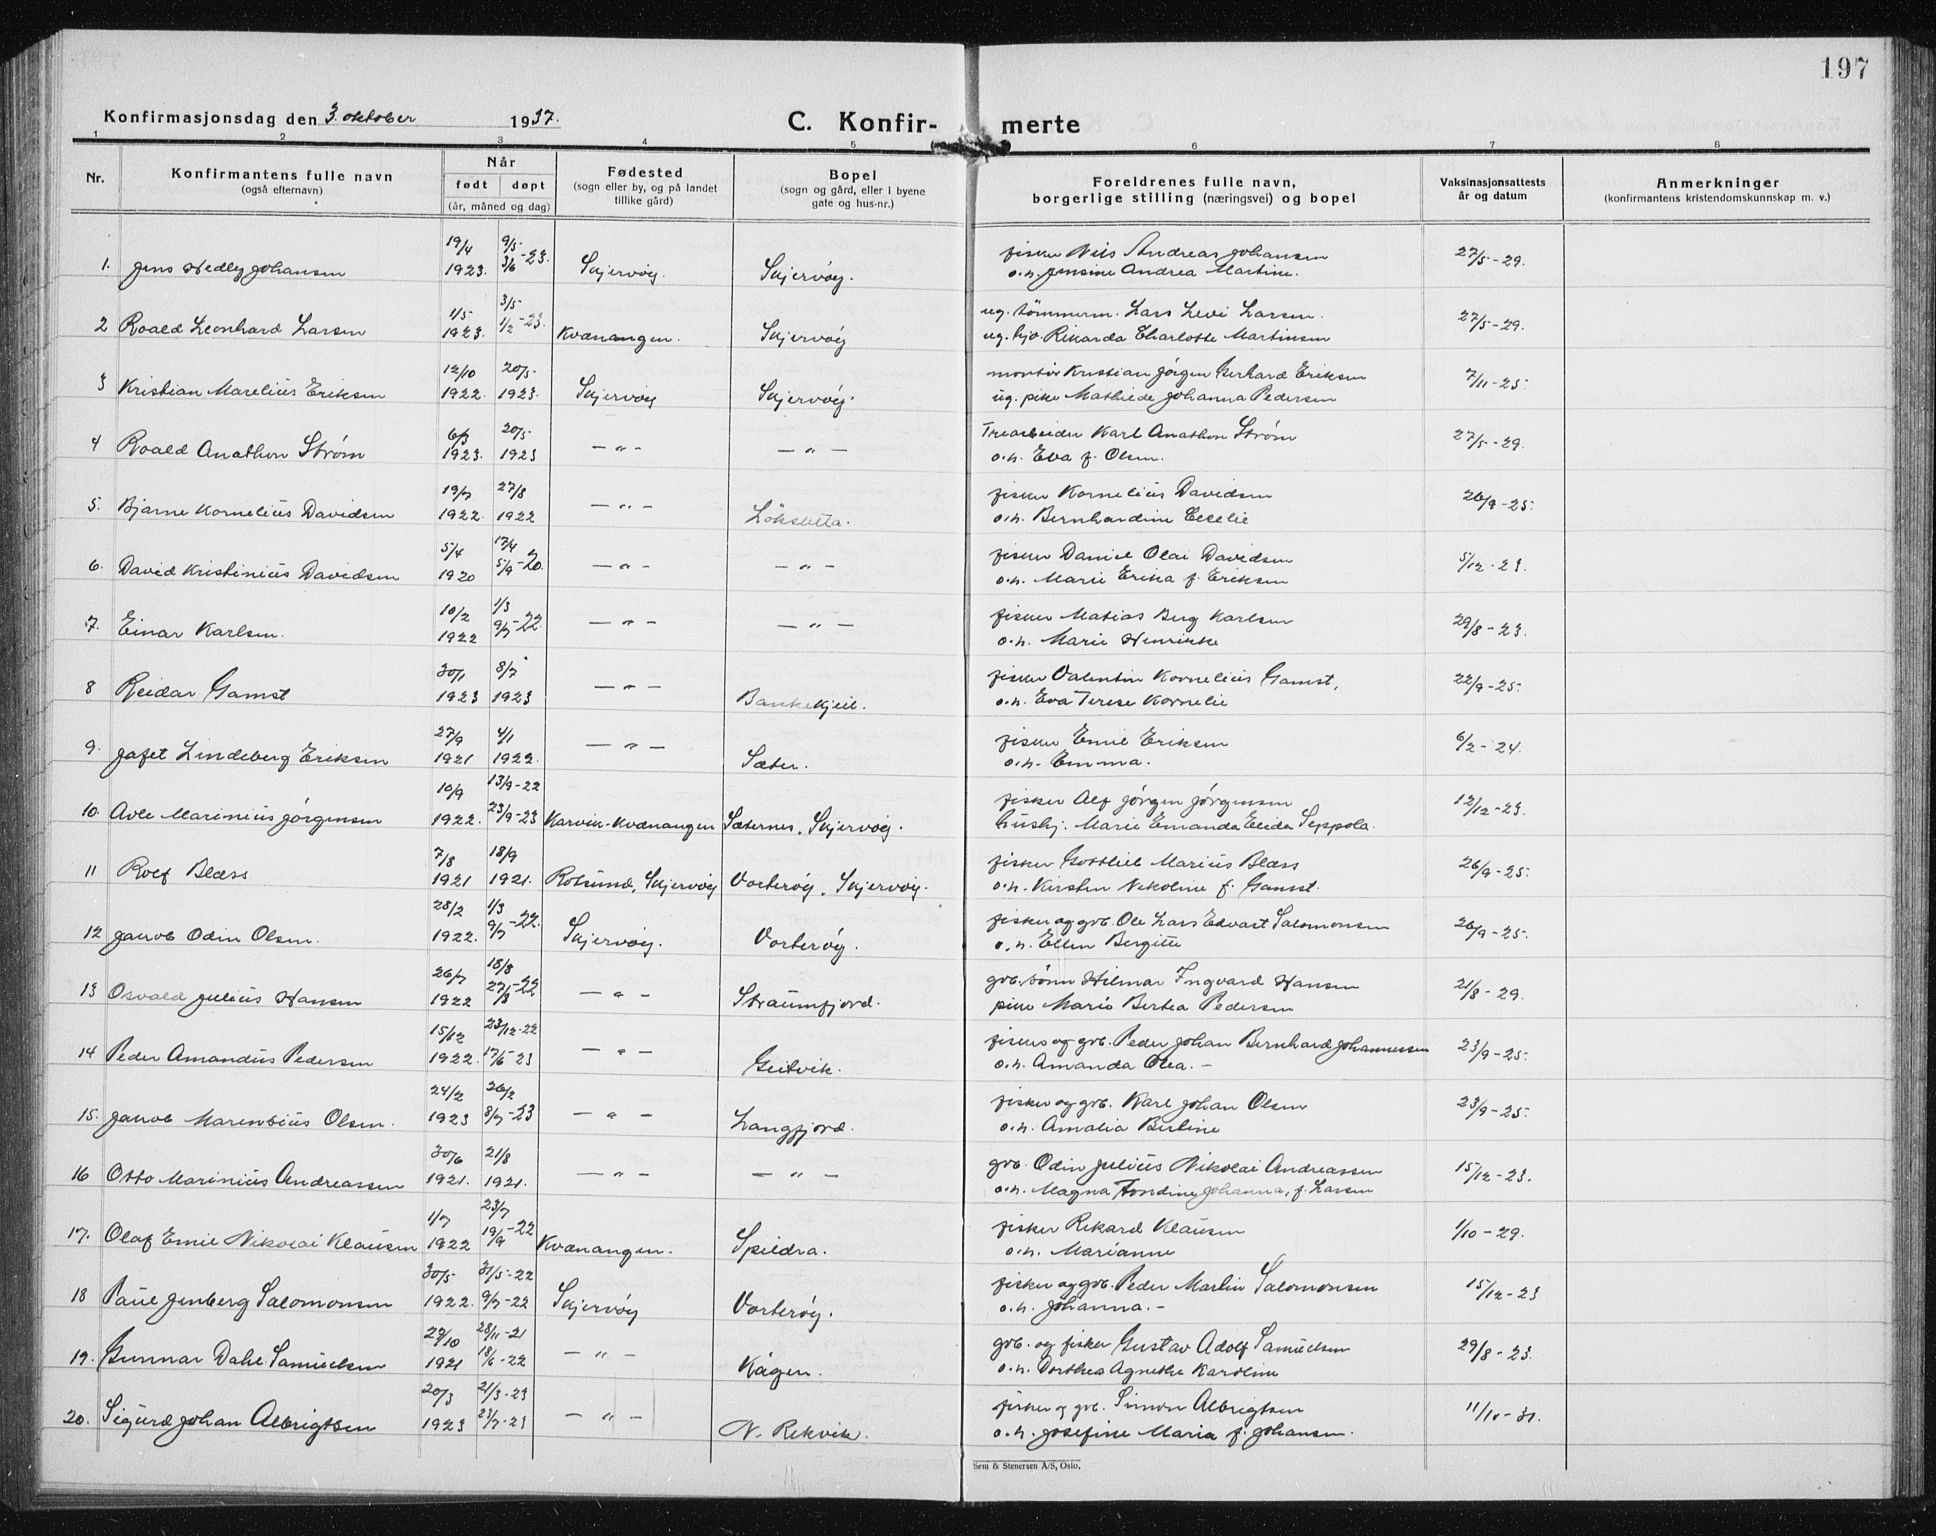 197
Konfirmasjonsdag den 3. oktober 1937.
C. Konfir- merte
1 2 3 4 5 6 7 8
Nr.
Konfirmantens fulle navn
(også efternavn)
Når
født døpt
(år, måned og dag)
Fødested
(sogn eller by, og på landet
tillike gård)
Bopel
(sogn og gård, eller i byene
gate og hus-nr.)
Foreldrenes fulle navn,
borgerlige stilling (næringsvei) og bopel
Vaksinasjonsattests
år og datum
Anmerkninger
(konfirmantens kristendomskunnskap m. v.)
19/4 9/5 fisker Nils Andreas Johansen
1. Jens Hedley Johansen 1923. 3/6 -23. Skjervøy. Skjervøy. o.h. Jensine Andrea Martine. 27/5-29.
1/5- 3/5- ug. tømmerm. Lars Levi Larsen.
2 Roald Leonhard Larsen 1923. 1/2 -23. Kvænangen. Skjervøy ug. hjo. Rikarda Charlotte Martinsen 27/5-29.
12/10 20/5- montør Kristian Jørgen Gerhard Eriksen
3 Kristian Marelius Eriksen 1922. 1923. Skjervøy Skjervøy. ug. pike Mathilde Johanna Pedersen 7/11-25-
6/3 20/5- Trearbeider Karl Anathon Strøm
4 Roald Anathon Strøm 1923. 1923 — " — — " — o.h. Eva f. Olsen. 27/5-29.
19/7 27/8 fisker Kornelius Davidsen
5. Bjarne Kornelius Davidsen 1922. 1922 — " — Løksletta. o.h. Bernhardine Cecelie 26/9-25-
5/4 17/4 fisker Daniel Olai Davidsen
6. David Kristinius Davidsen 1920 5/9-20. — " — — " — o.h. Marie Erika f. Eriksen 5/12-23.
10/2 1/3 fisker Matias Berg Karlsen
7. Einar Karlsen. 1922 9/7-22. — " — — " — o.h. Marie Henrikke 29/8-23.
30/1 8/7 fisker Valentin Kornelius Gamst,
8 Reidar Gamst 1923 1923 — " — Bankekjeil. o.h. Eva Terese Kornelie 22/9-25-
27/9 4/1 fisker Emil Eriksen
9. Jafet Lindeberg Eriksen 1921 1922. — " — Sæter. o.h. Emma. 6/2-24.
10/9 13/9-22 fisker Alf Jørgen Jørgensen
10. Avle Marinius Jørgensen 1922. 23/9-23 Karvik-Kvænangen Sæternes, Skjervøy. hushj. Marie Emanda Elida Seppola. 12/12-23.
7/8 18/9 fisker Gottlieb Marius Blæss
11 Rolf Blæss 1921 1921. Rotsund, Skjervøy Vorterøy, Skjervøy. o.h. Kirsten Nikoline f. Gamst. 26/9-25-
28/2 1/3 fisker og gvb. Ole Lars Edvart Salomonsen
12 Jakob Odin Olsen. 1922. 9/7-22. Skjervøy. Vorterøy. o.h. Ellen Bergitte 26/9-25-
26/7 18/8 gvb. sønn Hilmar Ingvard Hansen
13 Osvald Julius Hansen 1922 27/8-22 — " — Straumfjord. pike Marie Bertea Pedersen 21/8-29.
15/12 23/12-22 fisker og gvb. Peder Johan Bernhard Johannessen
14 Peder Amandus Pedersen 1922. 17/6-23 — " — Geitvik. o.h. Amanda Olea. — 23/9-25-
24/2 26/2 fisker og gvb. Karl Johan Olsen
15. Jakob Marensius Olsen. 1923 8/7-23 — " — Langfjord. o.h. Amalia Bertine 23/9-25-
30/6 21/8 gvb. Odin Julius Nikolai Andreassen
16 Otto Marinius Andreassen 1921. 1921. — " — — " — o.h. Magna Tondine Johanna, f. Larsen 15/12-23.
1/7 23/7 fisker Rikard Klausen
17. Olaf Emil Nikolai Klausen 1922 19/9-22 Kvænangen. Spildra. o.h. Marianne 1/10-29.
30/5- 31/5-22 fisker og gvb. Peder Martin Salomonsen
18 Paul Jenberg Salomonsen 1922. 9/7-22 Skjervøy Vorterøy. o.h. Johanna. — 15/12-23
29/10 28/11-21 gvb. og fisker Gustav Adolf Samuelsen
19. Gunnar Dahl Samuelsen 1921 18/6-22 — " — Kågen. o.h. Dorthea Agnethe Karoline 29/8-23.
20/3 21/3-23 fisker og gvb. Simon Albrigtsen
20. Sigurd Johan Albrigtsen 1923 23/7-23 — " — N. Rekvik. o.h. Josefine Maria f. Johansen. 11/10-31.
Sem & Stenersen A/S, Oslo.